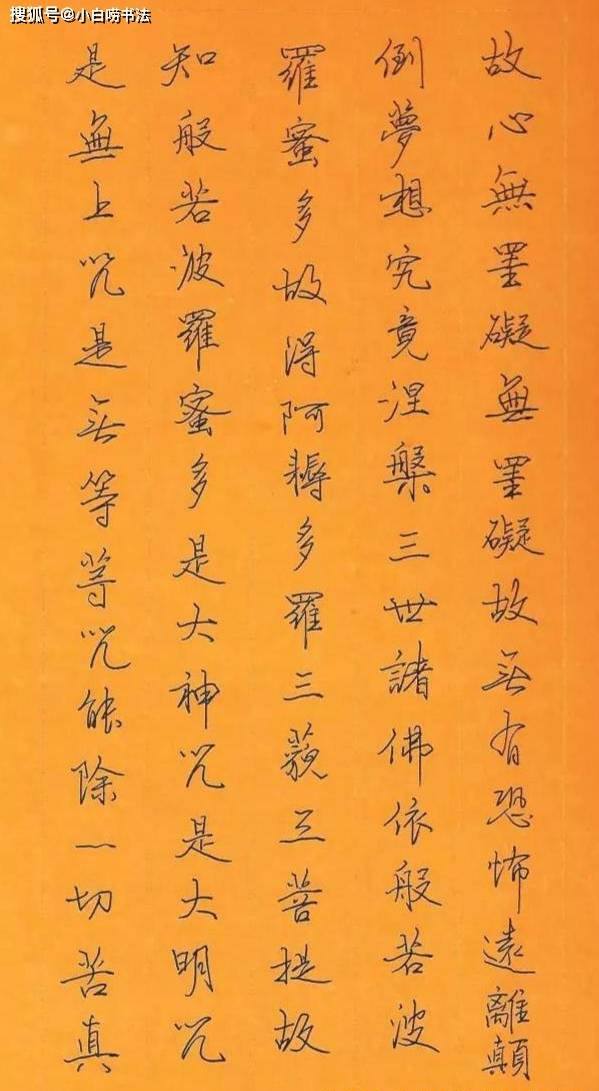 搜狐号@小白唠书法
故心無罣礙無罣礙故無有恐怖遠離顛
倒夢想究竟涅槃三世諸佛依般若波
羅蜜多故得阿耨多羅三藐三菩提故
知般若波羅蜜多是大神咒是大明咒
是無上咒是無等等咒能除一切苦真